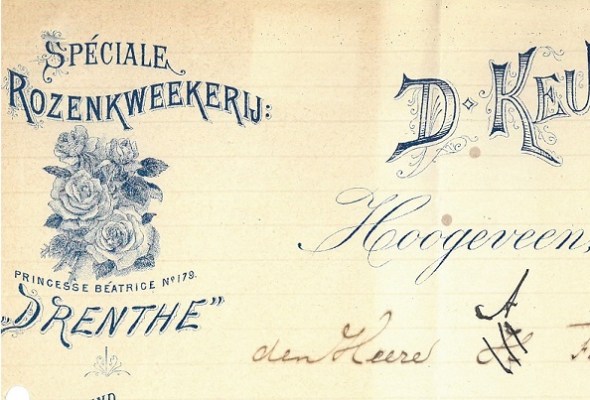 SPÉCIALE
ROZENKWEEKERIJ:
PRINCESSE BÉATRICE No 179.
„DRENTHE"
D. KEU
Hoogeveen,
den Heere A